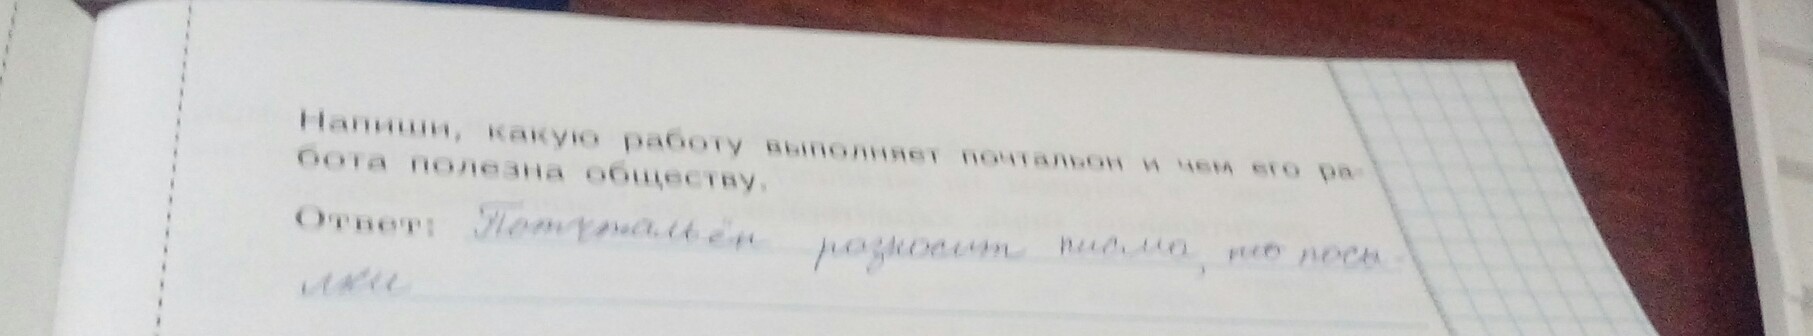 Напиши, какую работу выполняет почтальон и чем его ра-
бота полезна обществу.
Ответ: Потчтальён розносит писма, по посы-
лки